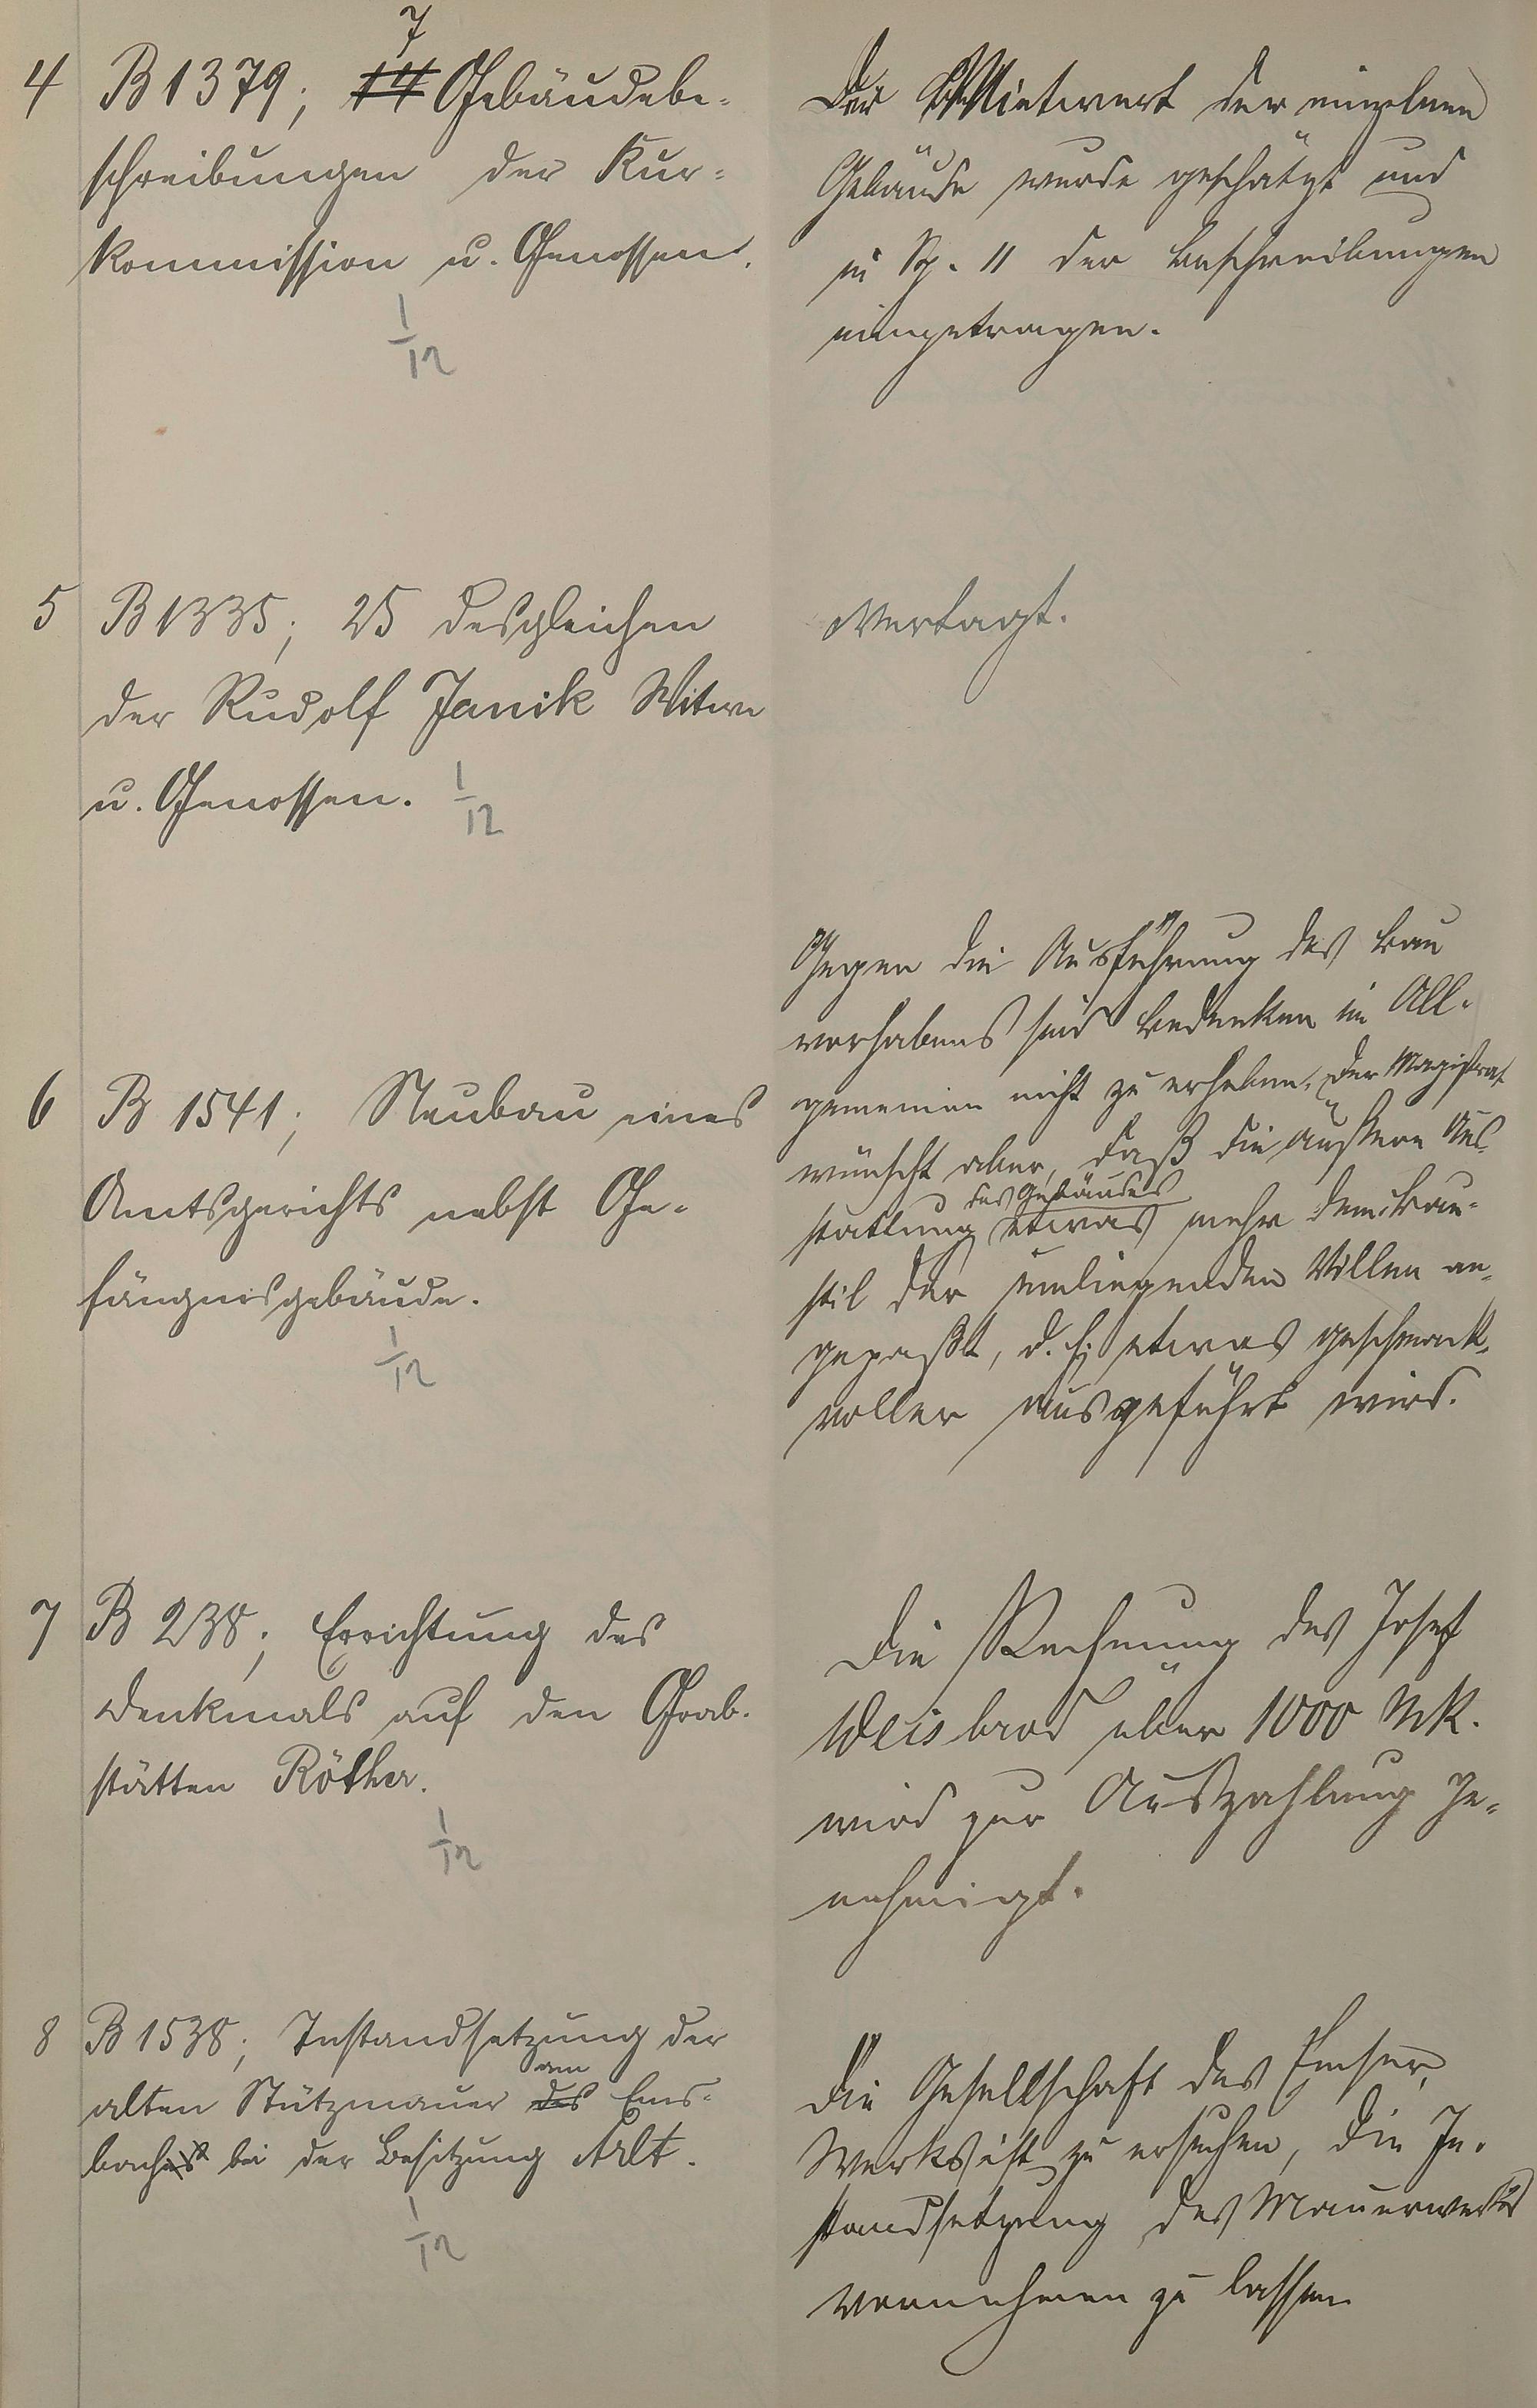 4 B 1379; 7 Gebäudebe-
schreibungen der Kur-
kommission u. Genossen.
1/12
Der Mietwert der einzelnen
Gebäude wurde geschätzt und
in Sp. 11 der Beschreibungen
eingetragen.
5 B 1335; 25 desgleichen
der Rudolf Janik Witwe
u. Genossen. 1/12
Vertagt.
6 B 1541; Neubau eines
Amtsgerichts nebst Ge-
fängnisgebäude.
1/12
Gegen die Ausführung des Bau
vorhabens sind Bedenken im All-
gemeinen nicht zu erheben. Der Magistrat
wünscht aber, daß die äußere Aus-
stattung des Gebäudes etwas mehr dem Bau-
stil der umliegenden Villen an-
gepaßt, d. h. etwas geschmack-
voller ausgeführt wird.
7 B 238; Errichtung des
Denkmals auf den Grab-
stätten Röther.
1/12
Die Rechnung des Josef
Weisbrod über 1000 Mk.
wird zur Auszahlung ge-
nehmigt.
8 B 1538; Instandsetzung der
alten Stützmauer des am Ems-
baches bei der Besitzung Arlt.
1/12
Die Gesellschaft des Emser
Werks ist zu ersuchen, die In-
standsetzung des Mauerwerks
vornehmen zu lassen